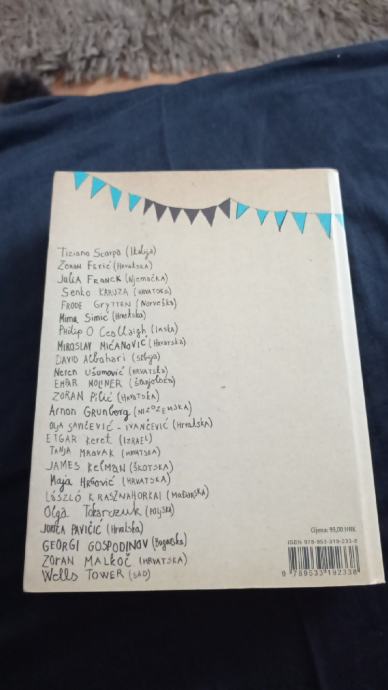 Tiziano Scarpa (Italija)
ZORAN FERIĆ (HRVATSKA)
Julia FRANCK (Njemačka)
Senko KARUZA (HRVATSKA)
FRODE GRYTTEN (Norveška)
Mima Simić (Hrvatska)
Philip O Ceallaigh (Irska)
MIROSLAV MIĆANOVIĆ (Hrvatska)
DAVID Albahari (Srbija)
Neven Ušumović (HRVATSKA)
EMPAR MOLINER (Španjolska)
ZORAN Pilić (HRVATSKA)
Arnon Grunberg (NIZOZEMSKA)
OLJA SAVIČEVIĆ - IVANČEVIĆ (Hrvatska)
ETGAR Keret (IZRAEL)
TANJA MRAVAK (HRVATSKA)
JAMES KELMAN (ŠKOTSKA)
Maja Hrgović (HRVATSKA)
LÁSZLÓ KRASZNAHORKAI (MAĐARSKA)
Olga Tokarczuk (POLJSKA)
JURICA PAVIČIĆ (Hrvatska)
GEORGI GOSPODINOV (Bugarska)
ZORAN MALKOČ (HRVATSKA)
Wells TOWER (SAD)
Cijena: 99,00 HRK
ISBN 978-953-319-233-8
9 789533 192338